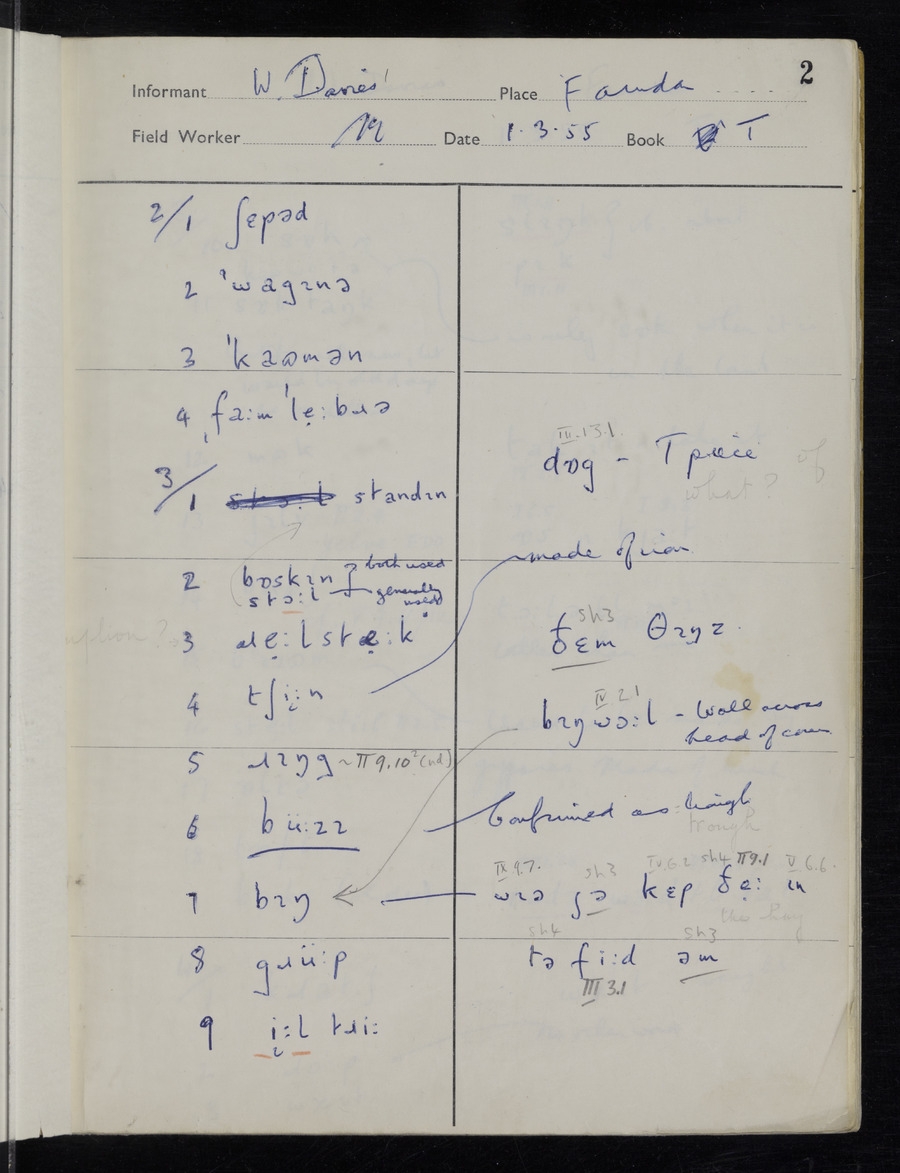 2
Informant W. Davies Place Farnda
Field Worker Date 1.3.55 Book T
2/1 ʃɛpəd
2 ˈwagɪnə
3 ˈkaʊmən
4 ˌfaːm ˈlẹːbɹə
III.13.1.
dɒg - T piece of
what?
3/1 standɪn
made of iron
2 bɒskɪn both used
stɔːl generally used
3 ɹẹːlstẹːk
sh3
ðɛm θɪŋz.
4 tʃiːn
IV 2 1
bɪŋwɔːl - wall across
head of cows
5 ɹɪŋg ~ II 9.10² (nd)
6 büːzɪ
Confirmed as trough
trough
IX 9.7. sh3 IV.6.2 sh4 II 9.1 V 6.6.
7 bɪŋ wɪə ʃə kɛp ðẹː in
the hay
sh4 sh3
8 gɹüːp
tə fiːd əm
III 3.1
9 iːl tɹiː